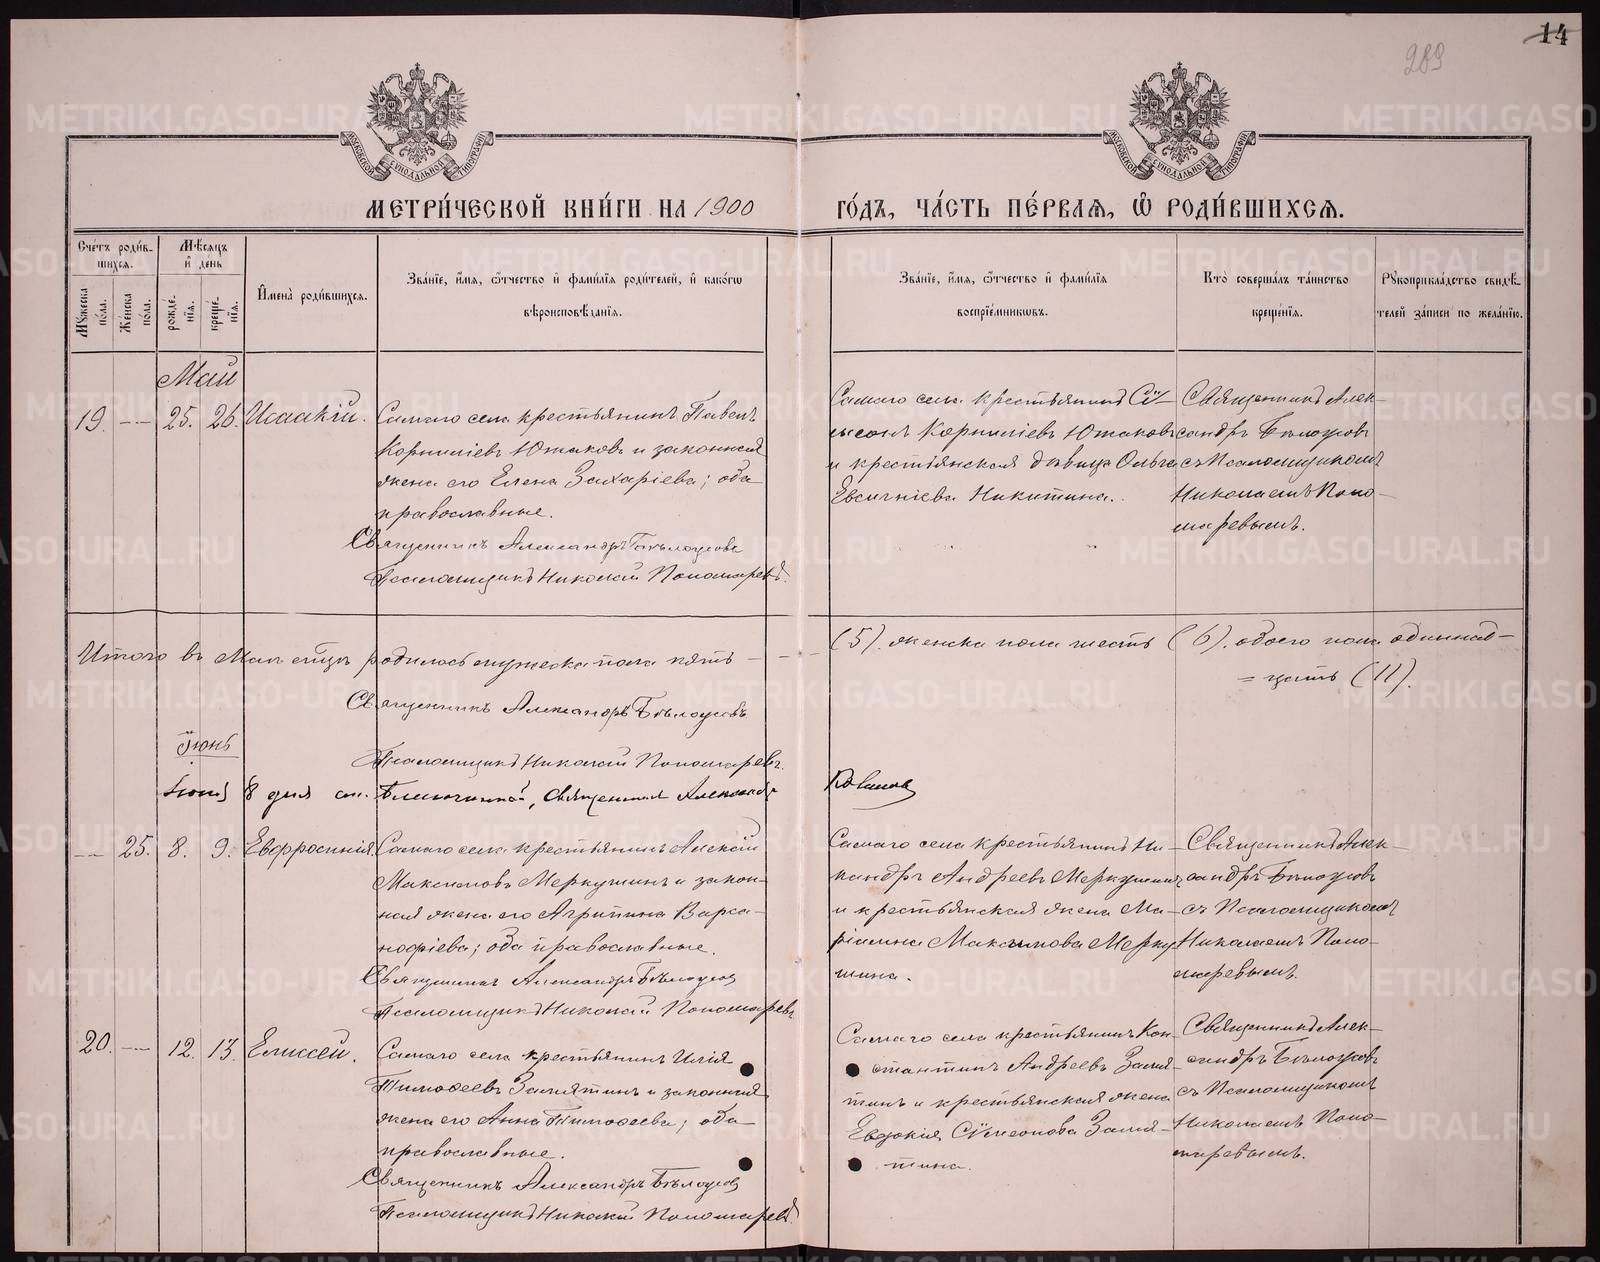 14
289
МЕТРИ́ЧЕСКОЙ КНИ́ГИ НА 1900
ГО́ДЪ, ЧА́СТЬ ПЕ́РВАѦ, Ѿ РОДИ́ВШИХСѦ.
Сче́тъ роди́в-
шихсѧ.
Мѣ́сѧцъ
и҆ де́нь
Му́жеска по́ла.
Же́нска по́ла.
рожде́-
нїѧ.
креще́-
нїѧ.
И҆мена̀ роди́вшихсѧ.
Зва́нїе, и҆́мѧ, ѻ҆́тчество и҆ фами́лїѧ роди́телей, и҆ како́гѡ
вѣроисповѣ́данїѧ.
Зва́нїе, и҆́мѧ, ѻ҆́тчество и҆ фами́лїѧ
воспрїе́мникѡвъ.
Кто̀ соверша́лъ та́инство
креще́нїѧ.
Рꙋкоприкла́дство свидѣ́-
телей за́писи по жела́нїю.
Май
19. — 25. 26. Исаакій.
Самаго села крестьянинъ Павелъ
Корниліевъ Южаковъ и законная
жена его Елена Захаріева; оба
православные.
Священникъ Александръ Бѣлоусовъ
Псаломщикъ Николай Пономаревъ.
Самаго села крестьянинъ Сѵ-
меонъ Корниліевъ Южаковъ
и крестьянская дѣвица Ольга
Никитина.
Священникъ Алек-
сандръ Бѣлоусовъ
съ Псаломщикомъ
Николаемъ Поно-
маревымъ.
Итого въ Маѣ мѣсяцѣ родилось мужеска пола пять —
(5). женска пола шесть (6). обоего пола одиннад-
= цать (11).
Священникъ Александръ Бѣлоусовъ
Псаломщикъ Николай Пономаревъ.
Іюнь
8 дня Священникъ
— 25. 8. 9. Евфросинія.
Самаго села крестьянинъ Алексій
Максимовъ Меркушинъ и закон-
ная жена его Агрипина Варса-
нофіева; оба православные.
Священникъ Александръ Бѣлоусовъ
Псаломщикъ Николай Пономаревъ
Самаго села крестьянинъ Ни-
кандръ Андреевъ Меркушинъ
и крестьянская жена Ма-
ріамна Максимова Мерку-
шина.
Священникъ Алек-
сандръ Бѣлоусовъ
съ Псаломщикомъ
Николаемъ Поно-
маревымъ.
20. — 12. 13. Елиссей.
Самаго села крестьянинъ Илія
Тимофеевъ Замятинъ и законная
жена его Анна Тимофеева; оба
православные.
Священникъ Александръ Бѣлоусовъ
Псаломщикъ Николай Пономаревъ.
Самаго села крестьянинъ Кон-
стантинъ Андреевъ Замя-
тинъ и крестьянская жена
Евдокія Сѵмеонова Замя-
тина.
Священникъ Алек-
сандръ Бѣлоусовъ
съ Псаломщикомъ
Николаемъ Поно-
маревымъ.
METRIKI.GASO-URAL.RU